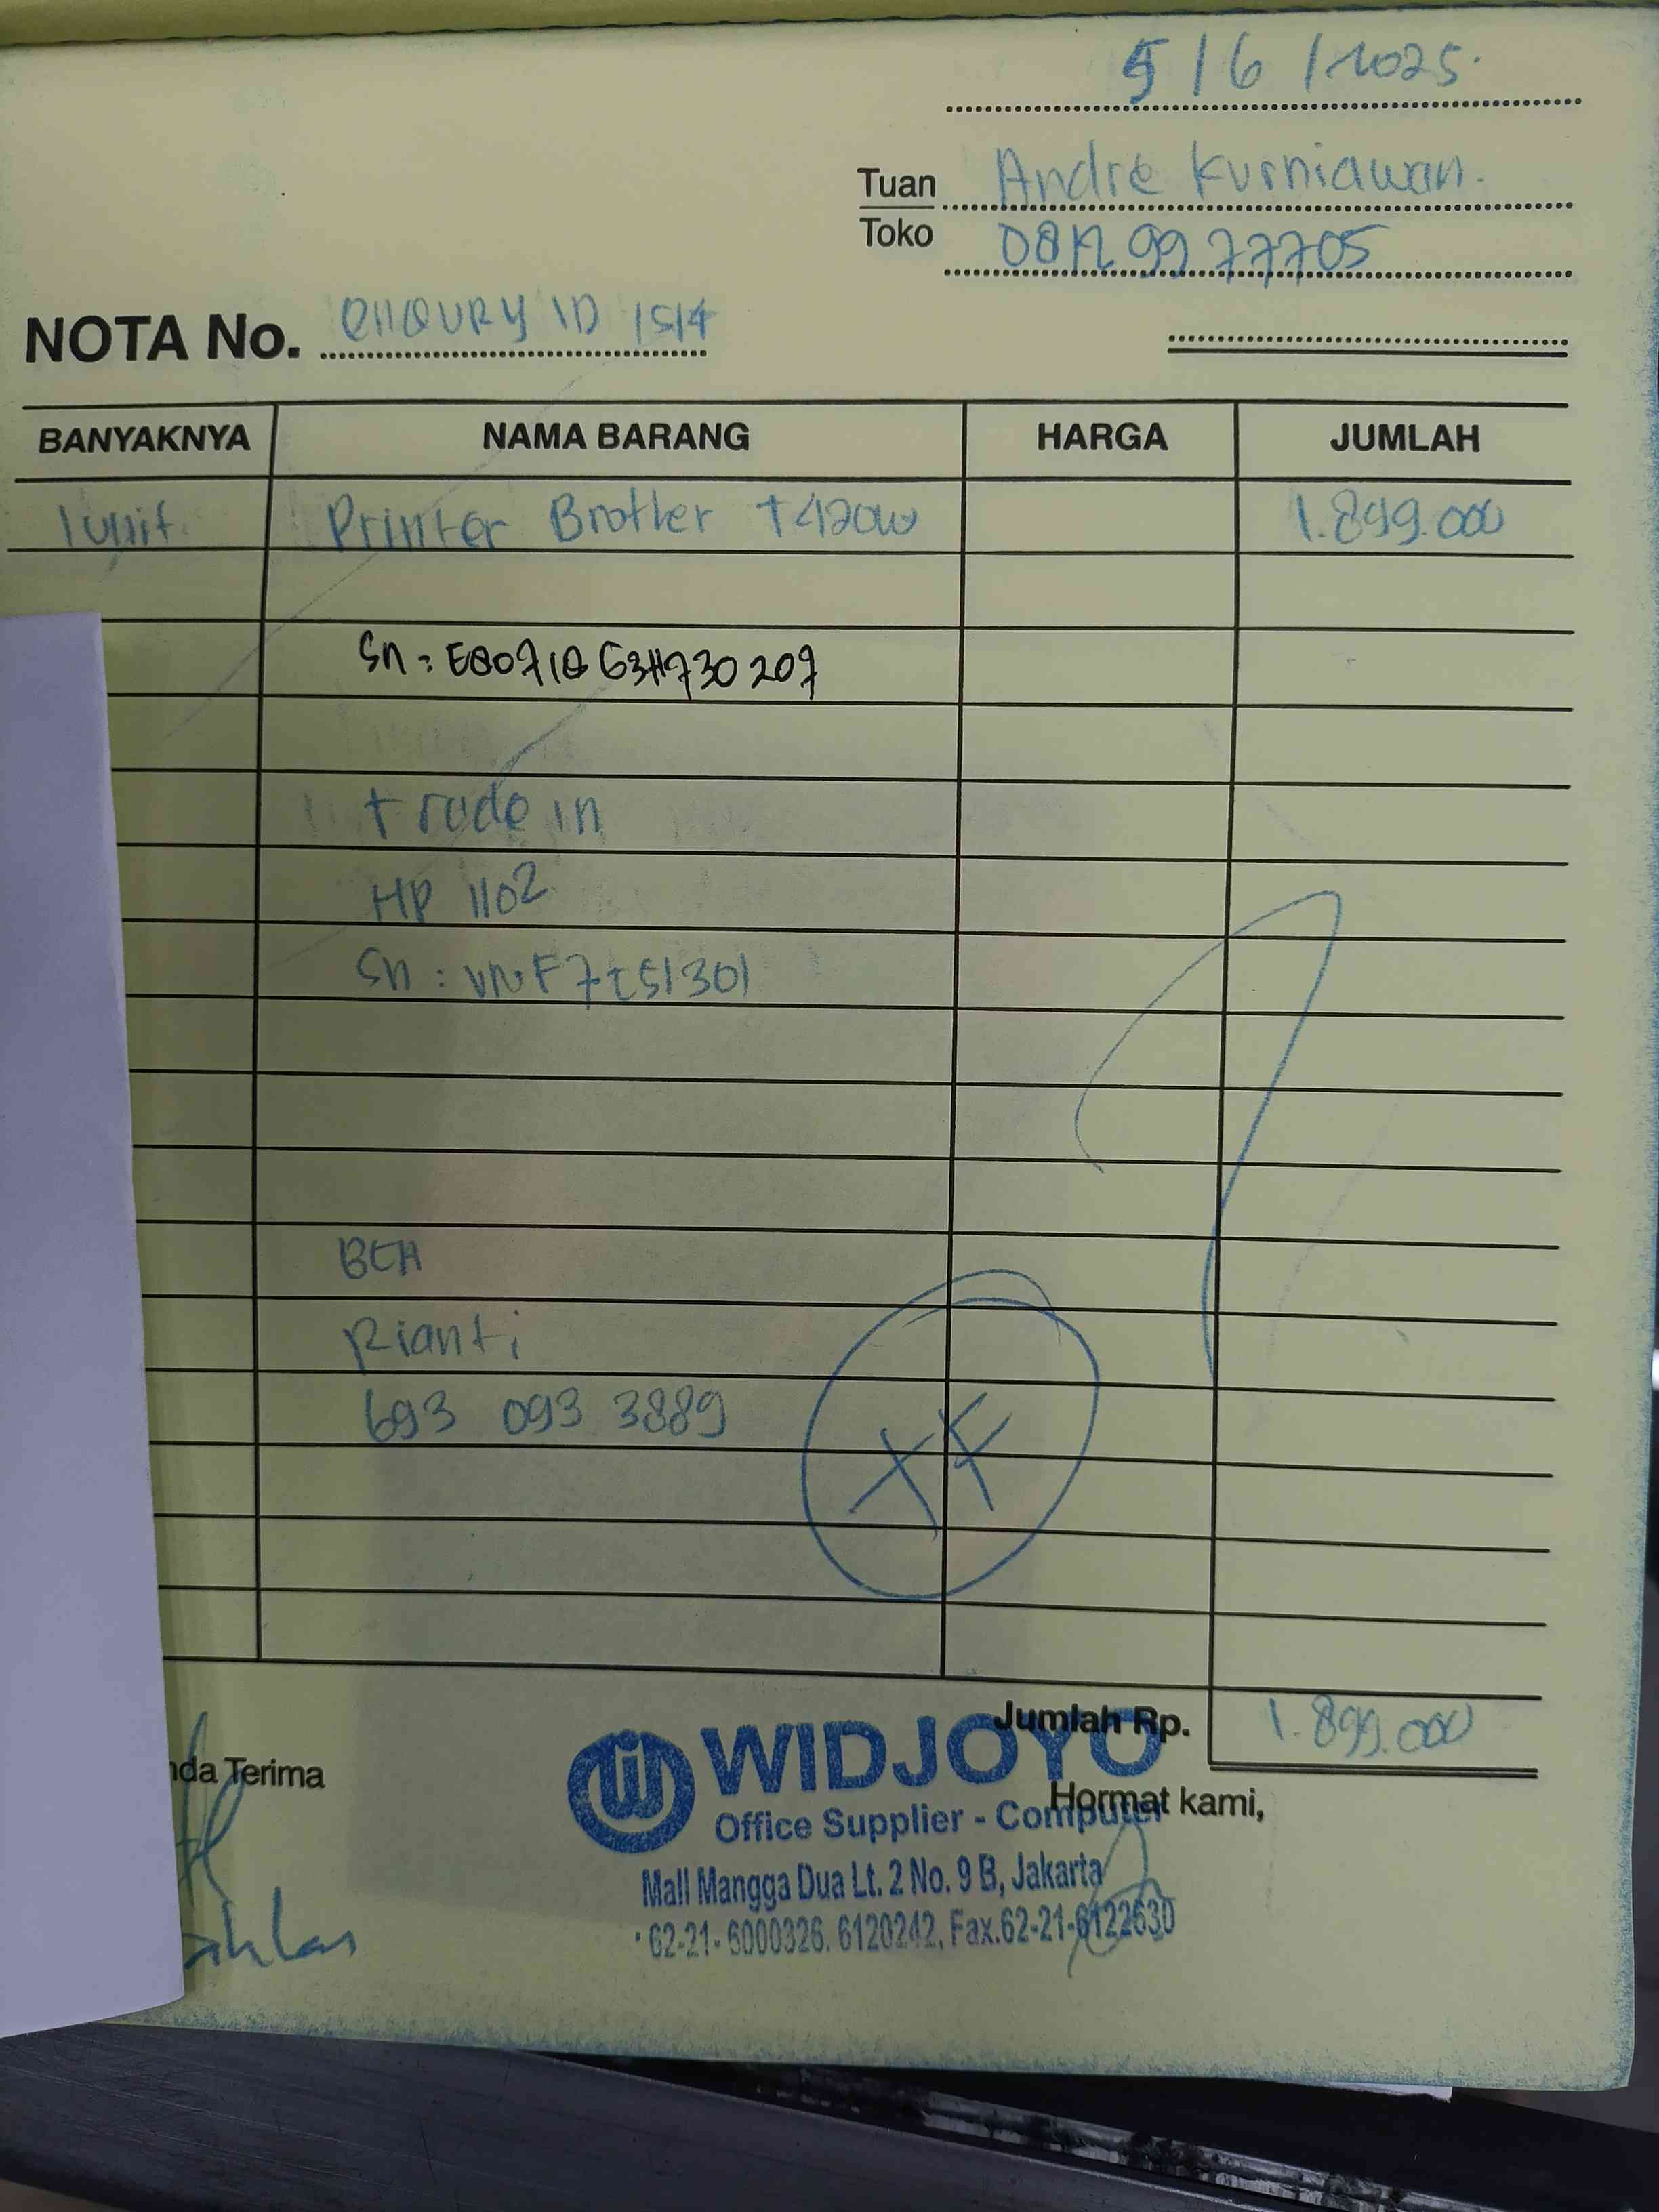 5/6/2025.
Tuan Andre Kurniawan.
Toko 0812 99 77705
NOTA No. ID 1514
BANYAKNYA NAMA BARANG HARGA JUMLAH
1 unit Printer Brother T420W 1.899.000
SN: E80718G3H730207
trade in
HP 1102
SN: VNF7t51301
BCA
Rianti
693 093 3889
XF
Jumlah Rp. 1.899.000
nda Terima
Hormat kami,
WIDJOYO
Office Supplier - Computer
Mall Mangga Dua Lt. 2 No. 9 B, Jakarta
62-21-6000326. 6120242, Fax.62-21-6122630